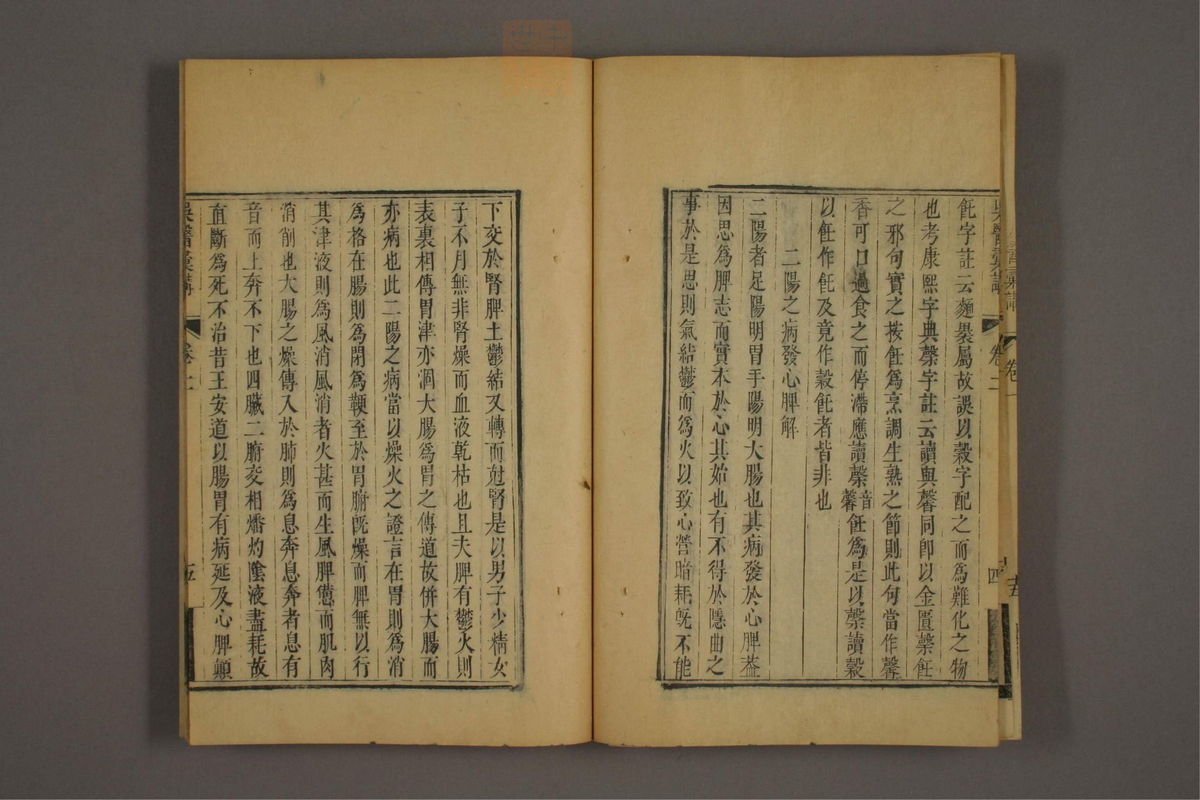 飪字註云麵㬥屬故誤以穀字配之而為難化之物
也考康熙字典䅽字註云讀與馨同卽以金匱䅽飪
之邪句實之按飪為烹調生熟之節則此句當作馨
香可口過食之而停滯應讀䅽音馨飪為是以䅽讀穀
以飪作飥及竟作穀飥者皆非也
二陽之病發心脾解
二陽者足陽明胃手陽明大腸也其病發於心脾蓋
因思為脾志而實本於心其始也有不得於隱曲之
事於是思則氣結鬱而為火以致心營暗耗旣不能
下交於腎脾土鬱結又轉而尅腎是以男子少精女
子不月無非腎燥而血液乾枯也且夫脾有鬱火則
表裏相傳胃津亦涸大腸為胃之傳道故併大腸而
亦病也此二陽之病當以燥火之證言在胃則為消
為格在腸則為閉為鞕至於胃腑旣燥而脾無以行
其津液則為風消風消者火甚而生風脾憊而肌肉
消削也大腸之燥傳入於肺則為息奔息奔者息有
音而上奔不下也四臟二腑交相燔灼隂液盡耗故
直斷為死不治昔王安道以腸胃有病延及心脾顛
吳醫彚講 卷二 五